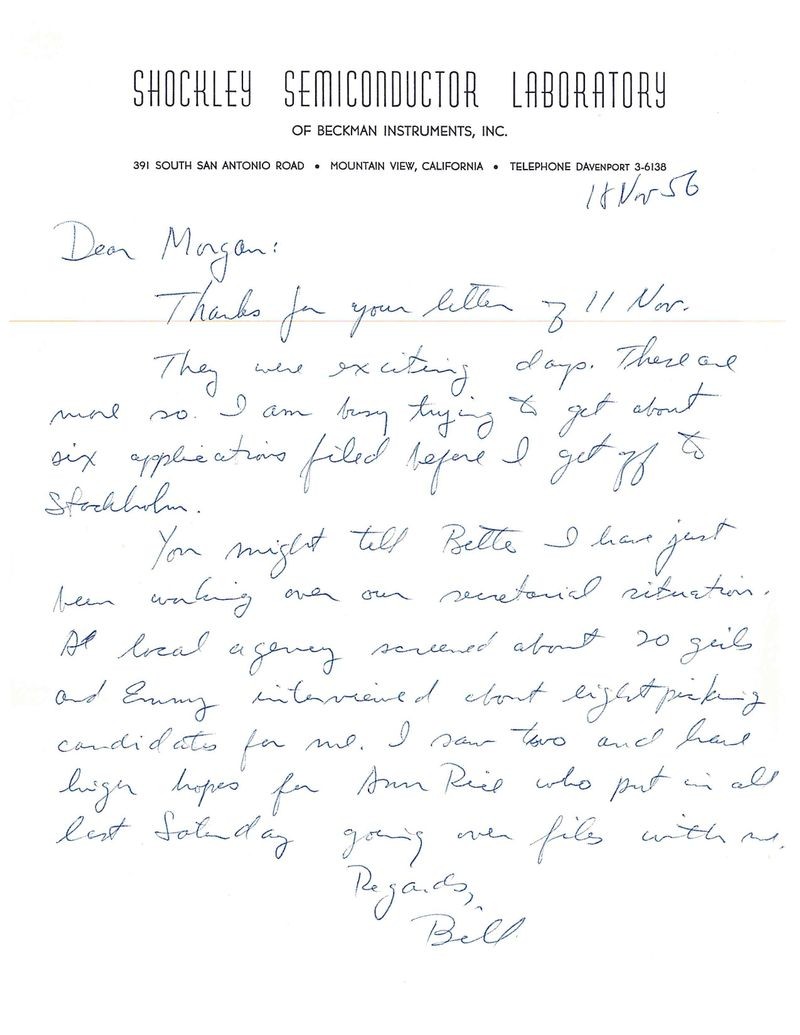 SHOCKLEY SEMICONDUCTOR LABORATORY
OF BECKMAN INSTRUMENTS, INC.
391 SOUTH SAN ANTONIO ROAD • MOUNTAIN VIEW, CALIFORNIA • TELEPHONE DAVENPORT 3-6138
18 Nov 56
Dear Morgan:
Thanks for your letter of 11 Nov.
They were exciting days. These are
more so. I am busy trying to get about
six applications filed before I get off to
Stockholm.
You might tell Bette I have just
been working over our secretarial situation.
A local agency screened about 20 girls
and Emmy interviewed about eight picking
candidates for me. I saw two and have
high hopes for Ann Rice who put in all
last Saturday going over files with me.
Regards,
Bill